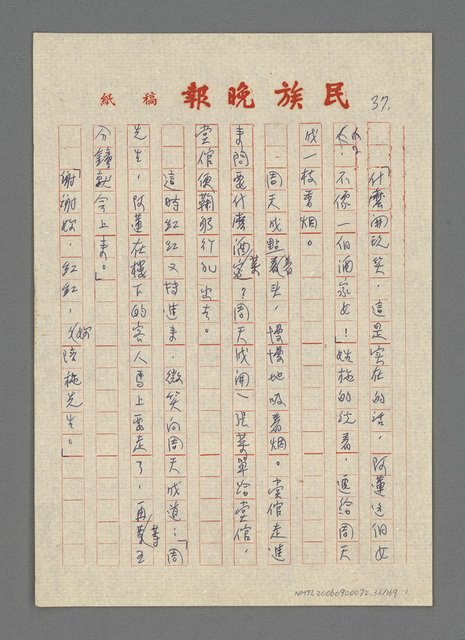 民族晚報 稿紙
37.
「什麼開玩笑,這是實在的話,阿蓮這個女
人,不像一個酒家女!」姓施的说着,遞給周天
成一枝香烟。
周天成點着頭,慢慢地吸着烟。堂倌走進
来問要什麼酒菜?周天成開一張菜單給堂倌,
堂倌便鞠躬行礼出去。
這時紅紅又轉進来,微笑向周天成道:「周
先生,阿蓮在樓下的客人馬上要走了,再等五
分鐘就会上来。」
「謝謝妳,紅紅,妳陪施先生。」
NMTL20060900072 38/169